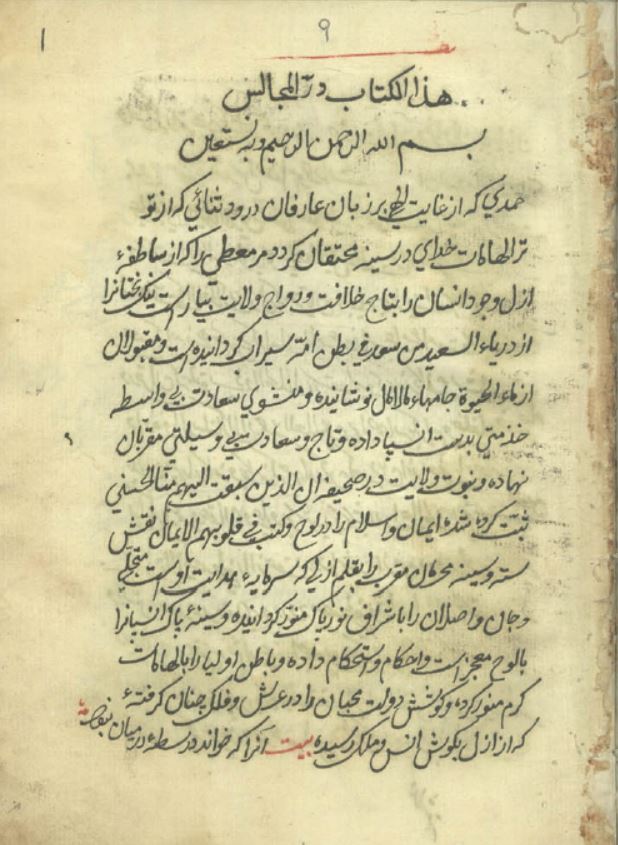 ۹
۱
هذا الكتاب درّ المجالس
بسم الله الرحمن الرحيم وبه نستعين
حمدي كه از غايت الهي بر زبان عارفان درود ثنائي كه از تو
تر الهامات خداي در سينه محتقان كردد مر معطي را كه از ساطفهٔ
ازل وجود انسان را بتاج خلافت و رواج ولايت بياراست نيك بختانرا
از درياء السعيد من سعد في بطن امّه سيراب كردانيده است و مقبولان
از ماء الحيوة جامهاء مالامال نوشانيده و منشوي سعادت بي واسطه
خدمتي بدست انبيا داده و تاج و سعادت بي وسيلتي مقربان
نهاده و نبوت ولايت در صحيفه ان الذين سبقت اليهم منّا الحسني
ثبت كرده شدهٔ ايمان و اسلام را در لوح و كتب في قلوبهم الايمان نقش
بسته و سينه محرمان مقرب را بقلم ازلي كه سرمايهٔ هدايت اوست متجلي
و جان واصلان را باشراق نور پاك منوّر كردانيده و سينهٔ پاك انبيا نرا
بالوح معجزات و احكام و استحكام داده و باطن اوليا را بالهامات
كرم منور كرده و كوشش دولت محبان را در عرش و فلك چنان كرفتهٔ
كه از ازل بكوش انس و ملك رسيده بيت آنرا كه خواند در سطهٔ در ميان